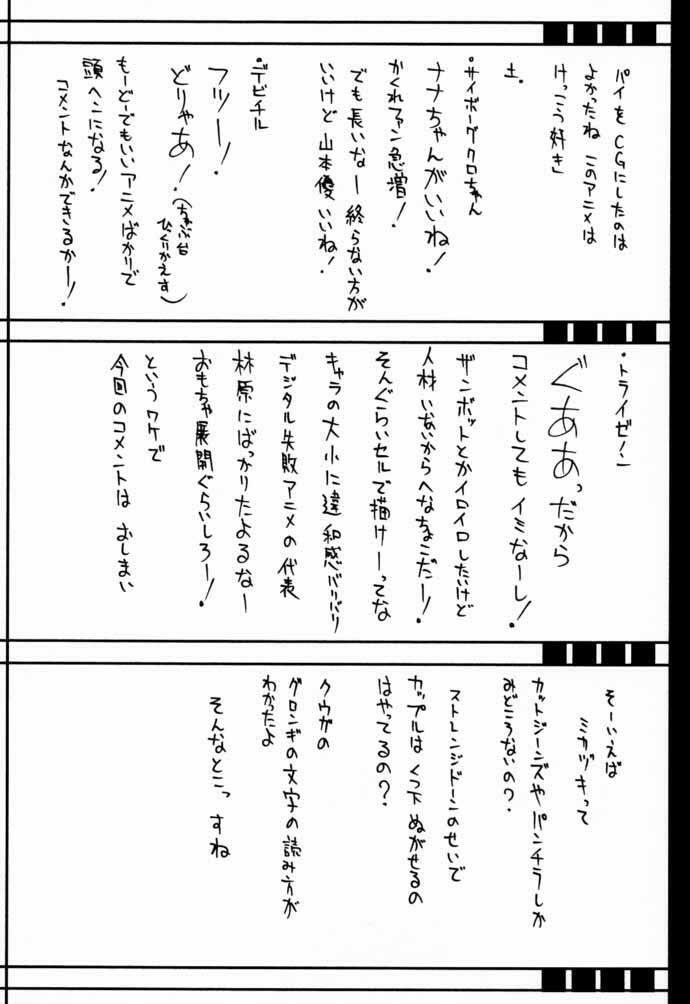 パイを CGにしたのは
よかったね このアニメは
けっこう好き」
土.
・サイボーグクロちゃん
ナナちゃんがいいね!
かくれファン急増!
でも長いなー 終らない方が
いいけど 山本優 いいね!
・デビチル
フツー!
どりゃあ!(ちゃぶ台
ひっくりかえす)
もーどーでもいいアニメばかりで
頭ヘンになる!
コメントなんかできるかー!
・トライゼノン
ぐああっだから
コメントしても イミなーし!
ザンボットとかイロイロしたいけど
人材いないからへなちょこだー!
そんぐらいセルで描けーってな
キャラの大小に違和感バリバリ
デジタル失敗アニメの代表
林原にばっかりたよるなー
おもちゃ展開ぐらいしろー!
というワケで
今回のコメントは おしまい
そーいえば
ミカヅキって
カットジーンズや パンチラしか
みどころないの?
ストレンジドーンのせいで
カップルは くつ下 ぬがせるの
はやってるの?
クウガの
グロンギの文字の読み方が
わかったよ
そんなとこっ すね